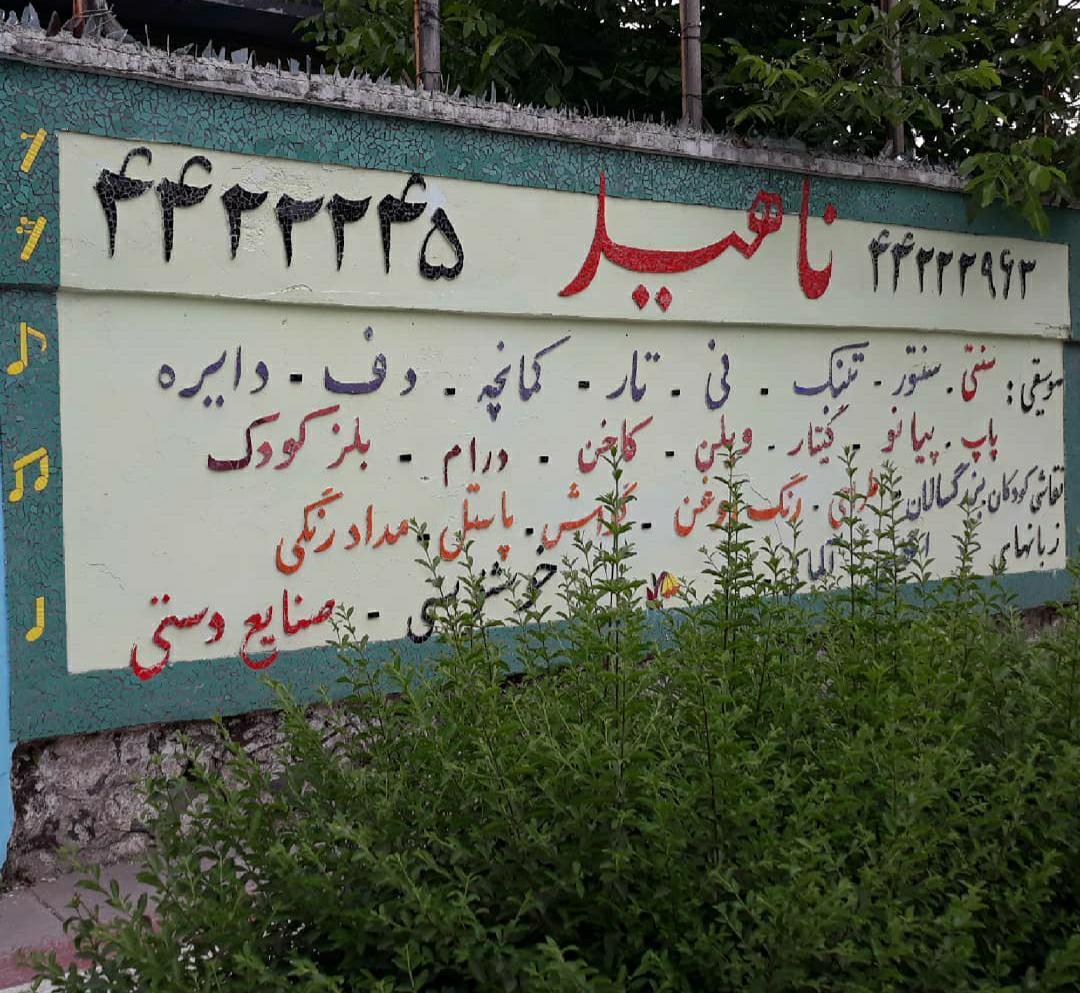 ۴۴۲۲۲۹۶۳ ناهید ۴۴۲۲۲۴۵
موسیقی : سنتی . سنتور - تنبک . نی . تار - کمانچه . دف - دایره
پاپ . پیانو - گیتار - ویلن . کاخن . درام - بلز کودک
نقاشی کودکان بزرگسالان طراحی . رنگ روغن - گواش . پاستل . مداد رنگی
زبانهای خوشنویسی - صنایع دستی